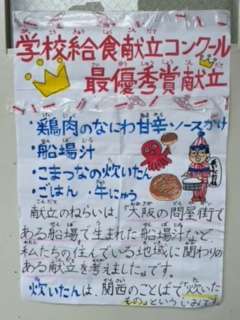 学校給食献立コンクール
最優秀賞献立
・鶏肉のなにわ甘辛ソースがけ
・船場汁
・こまつなの炊いたん
・ごはん ・牛にゅう
献立のねらいは、「大阪の問屋街で
ある船場で生まれた船場汁など、
私たちの住んでいる地域に関わりの
ある献立を考えました」です。
炊いたんは、関西のことばで「炊いた
もの」という